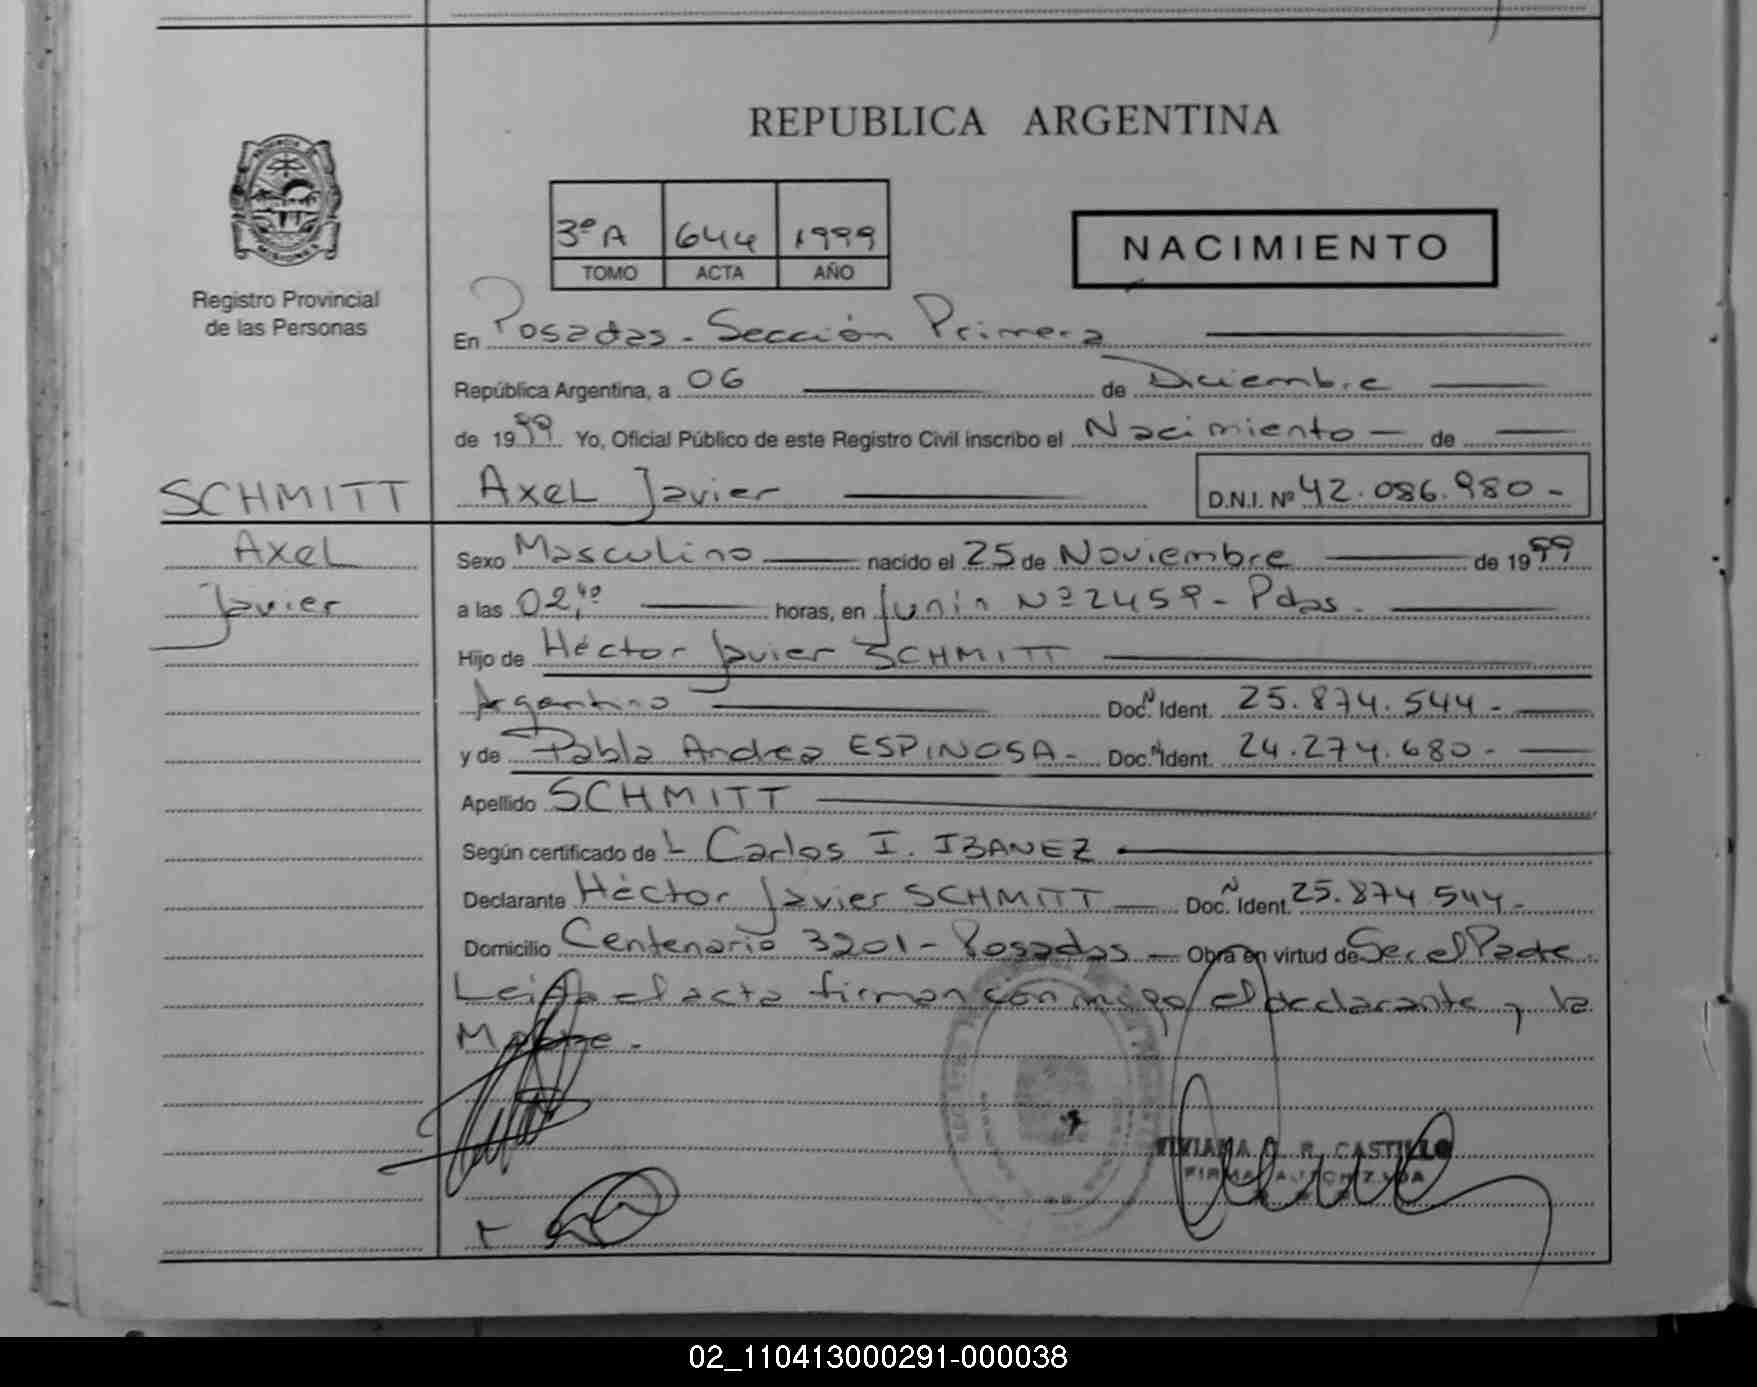 REPUBLICA ARGENTINA
3º A 644 1999
TOMO ACTA AÑO
NACIMIENTO
PROVINCIA DE MISIONES
Registro Provincial
de las Personas
En Posadas - Sección Primera
República Argentina, a 06 de Diciembre
de 1999 Yo, Oficial Público de este Registro Civil inscribo el Nacimiento - de
SCHMITT
Axel Javier
Axel Javier D.N.I. Nº 42.086.980 -
Sexo Masculino nacido el 25 de Noviembre de 1999
a las 02,40 horas, en Junín Nº 2459 - Pdas.
Hijo de Héctor Javier SCHMITT
Argentino Doc. N Ident. 25.874.544 -
y de Pabla Andrea ESPINOSA - Doc. N Ident. 24.274.680 -
Apellido SCHMITT
Según certificado de L Carlos I. IBANEZ
Declarante Héctor Javier SCHMITT Doc. N Ident. 25.874.544 -
Domicilio Centenario 3201 - Posadas - Obra en virtud de Ser el Padre.
Leida el acta firman conmigo el declarante y la
Madre -
VIVIANA R. CASTILLO
FIRMA AUTORIZADA
02_110413000291-000038